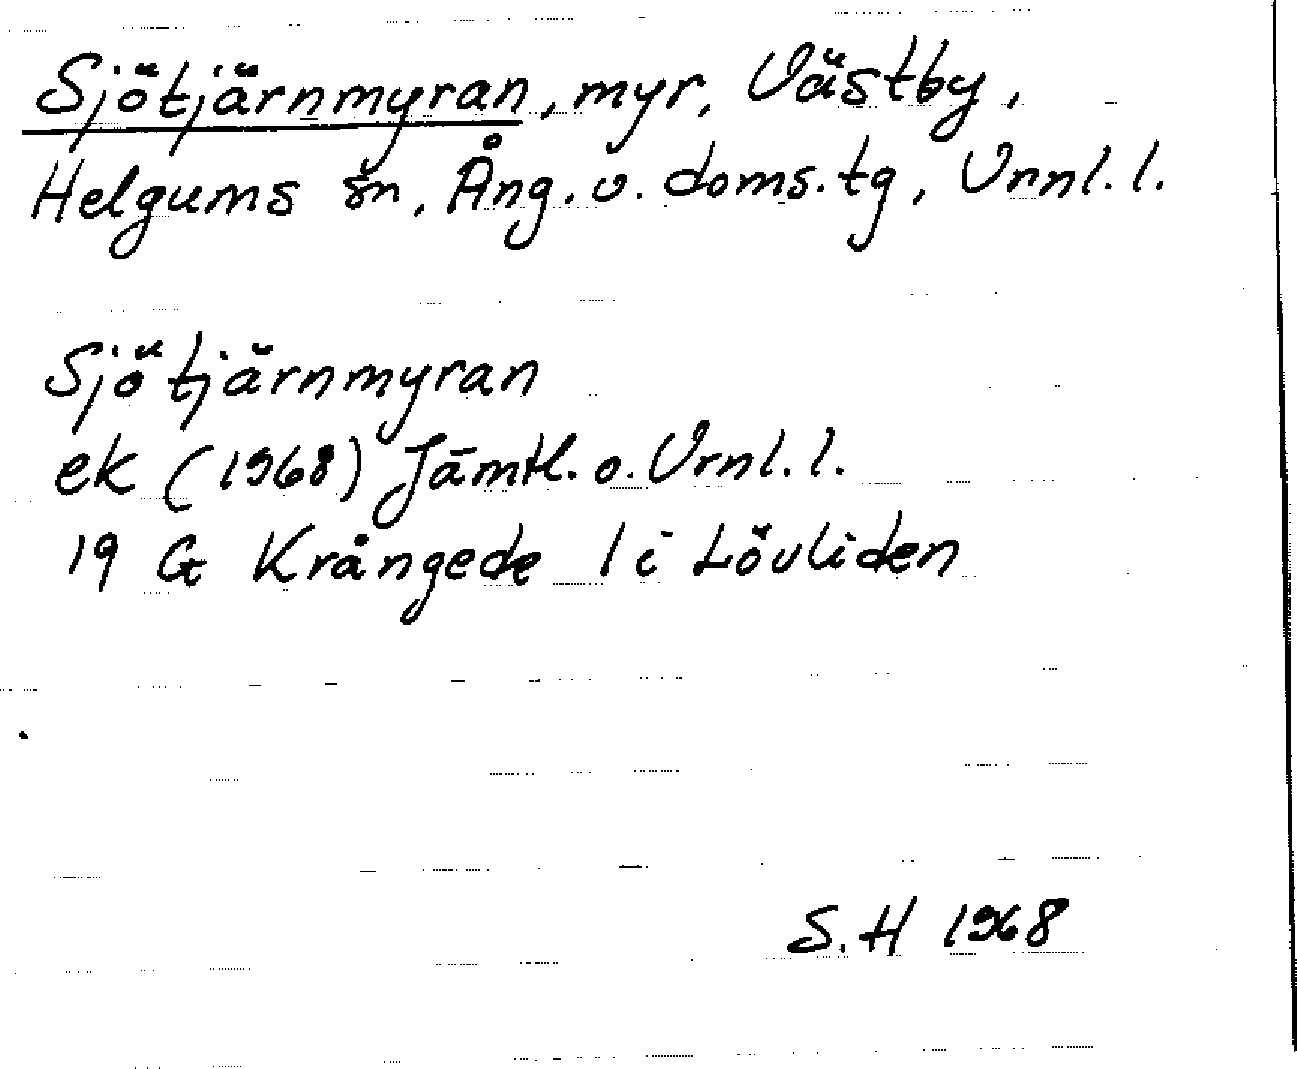 Sjötjärnmyran, myr, Västby,
Helgums sn, Ång. v. doms. tg, Vrnl. l.
Sjötjärnmyran
ek (1968) Jämtl. o. Vrnl. l.
19 G Krångede 1 i Lövliden
S. H 1968